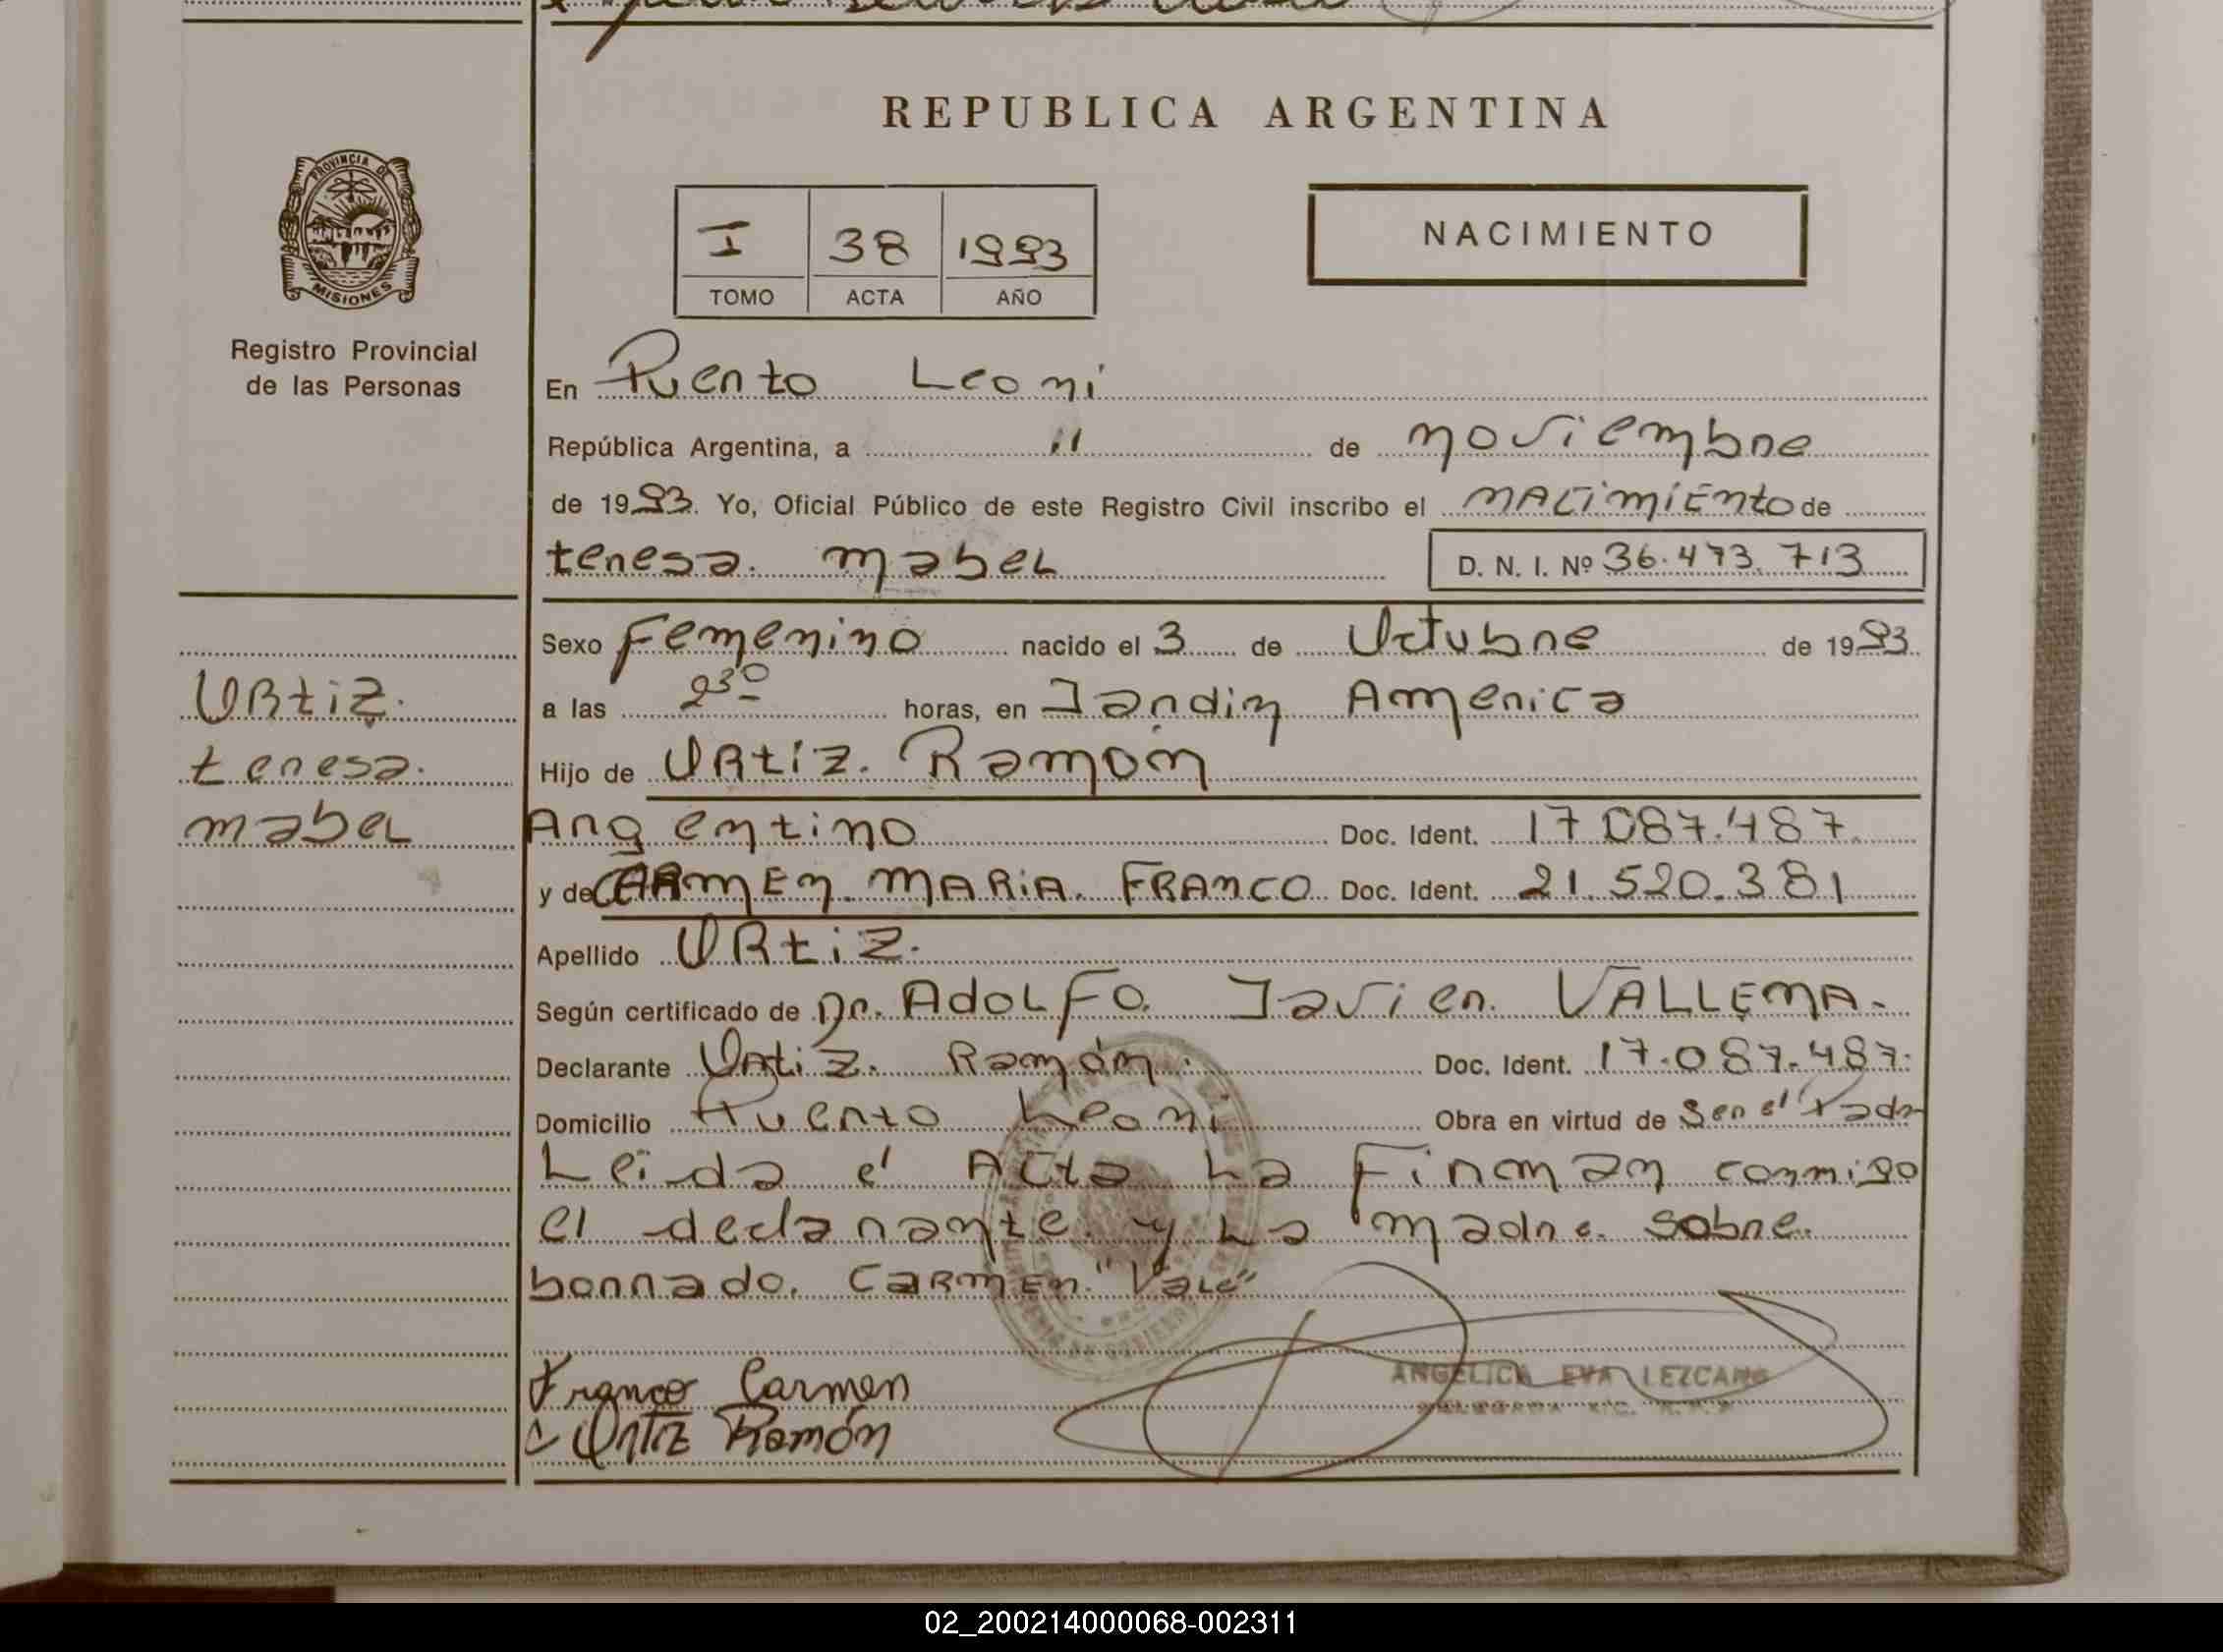 REPUBLICA ARGENTINA
PROVINCIA DE MISIONES
I 38 1993
TOMO ACTA AÑO
NACIMIENTO
Registro Provincial
de las Personas
En Puerto Leoni
República Argentina, a 11 de noviembre
de 1993. Yo, Oficial Público de este Registro Civil inscribo el nacimiento de
teresa. mabel D. N. I. Nº 36.473.713
Sexo Femenino nacido el 3 de Octubre de 1993
a las 23º horas, en Jardin America
Hijo de ORtiz. Ramón
Argentino Doc. Ident. 17.087.487.
y de CARmEn. MARiA. FRAnCO Doc. Ident. 21.520.381
Apellido ORtiz.
Según certificado de Dr. AdOLFO. Javier. VALLEmA.
Declarante Ortiz. Ramón. Doc. Ident. 17.087.487.
Domicilio Puerto Leoni Obra en virtud de Ser el Padre
Leida el Acta La Firman conmigo
el declarante y La madre. sobre.
borrado. CaRmEn. "Vale"
ORtiz.
teresa.
mabel
Franco Carmen
Ortiz Ramón
ANGELICA EVA LEZCANO
02_200214000068-002311